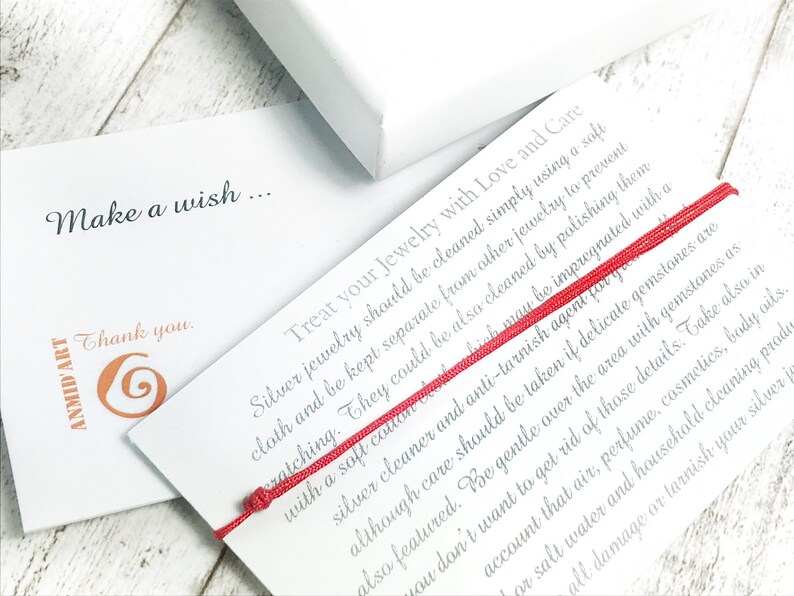 Make a wish ...
Thank you.
ANMID'ART
Treat your Jewelry with Love and Care
Silver jewelry should be cleaned simply using a soft
cloth and be kept separate from other jewelry to prevent
scratching. They could be also cleaned by polishing them
with a soft cotton cloth which may be impregnated with a
silver cleaner and anti-tarnish agent for
although care should be taken if delicate gemstones are
also featured. Be gentle over the area with gemstones as
you don't want to get rid of those details. Take also in
account that air, perfume, cosmetics, body oils,
or salt water and household cleaning produ
all damage or tarnish your silver j